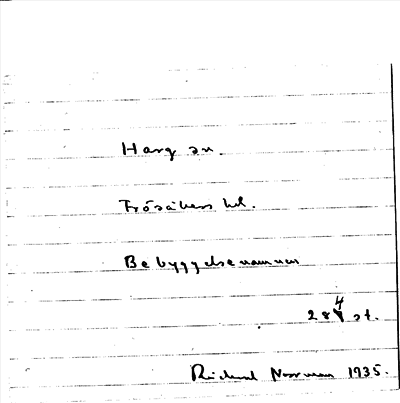 Harg sn.
Frösåkers hd.
Bebyggelsenamnen
284 st.
Richard Norrman 1935.